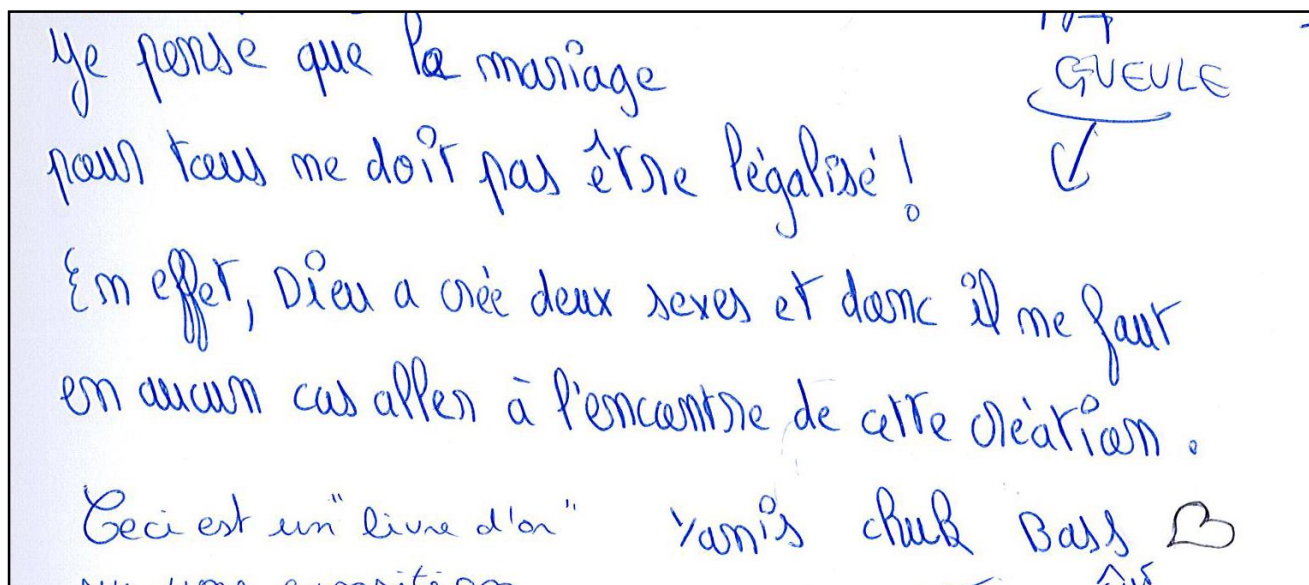 Je pense que le mariage
GUEULE
pour tous ne doit pas être légalisé !
En effet, Dieu a créé deux sexes et donc il ne faut
en aucun cas aller à l'encontre de cette création.
Ceci est un "livre d'or"
Yanis chuk Bass
sur une exposition